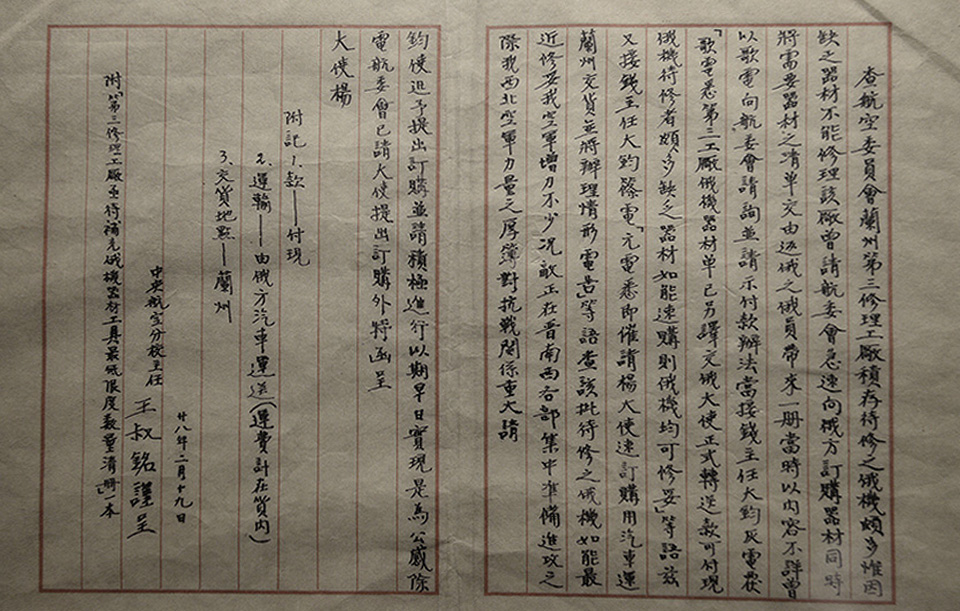 查航空委員會蘭州第三修理工廠積存待修之俄機頗多惟因
缺乏器材不能修理該廠曾請航委會急速向俄方訂購器材同時
將需要器材之清單交由返俄之俄員帶來一册當時以內容不詳曾
以歌電向航委會請詢並請示付款辦法當接錢主任大鈞灰電覆
「歌電悉第三工廠俄機器材单已另譯交俄大使正式轉送款可付現
俄機待修者頗多缺乏器材如能速購則俄機均可修妥」等語兹
又接錢主任大鈞篠電「元電悉即催請楊大使速訂購用汽車運
蘭州交貨並將辦理情形電告」等語查該批待修之俄機如能最
近修妥我空軍增力不少况敵正在晋南西各部集中准備進攻之
際我西北空軍力量之厚簿對抗戰関係重大請
鈞使迅予提出訂購並請積極進行以期早日實現是為公感除
電航委會已請大使提出訂購外特函呈
大使楊
附記1、款——付現
2、運輸——由俄方汽車運送(運費計在貨内)
3、交貨地點—蘭州
中央航空分校主任 王叔銘謹呈
廿八年二月十九日
附「第三修理工廠亟待補充俄機器材工具最低限度数量清册」一本